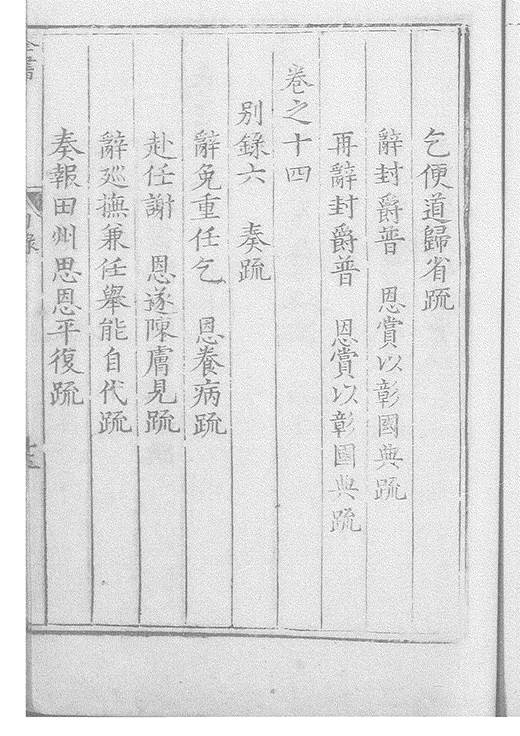 乞便道歸省疏
辭封爵普　恩賞以彰國典疏
再辭封爵普　恩賞以彰國典疏
卷之十四
別錄六　奏疏
辭免重任乞　恩養病疏
赴任謝　恩遂陳膚見疏
辭廵撫兼任舉能自代疏
奏報田州思恩平復疏